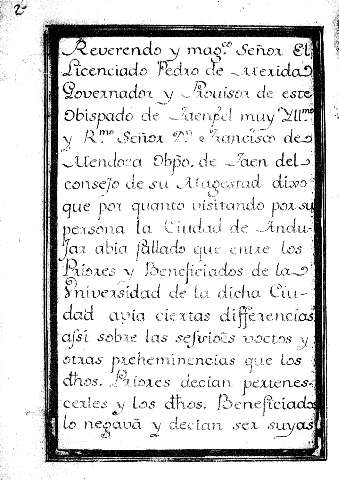 2
Reverendo y mag.co Señor El
Licenciado Pedro de Merida
Governador y Provisor de este
Obispado de Jaen pel muy Yll.mo
y R.mo Señor D.n Francisco de
Mendoza Obpo. de Jaen del
consejo de su Magestad dixo
que por quanto visitando por su
persona la Ciudad de Andu-
Jar abia fallado que entre los
Priores y Beneficiados de la
Vniversidad de la dicha Ciu-
dad avia ciertas differencias
assi sobre las servicios voctos y
otras preheminencias que los
dhos. Priores decian pertenes-
cerles y los dhos. Beneficiados
lo negavã y decian ser suyas